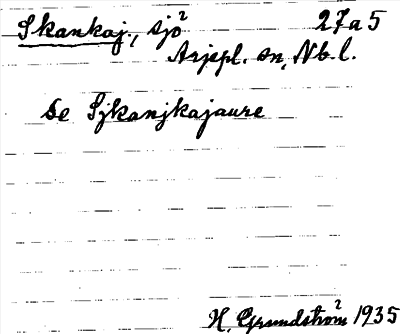 Skankaj., sjö² 27a5
Arjepl. sn, Nb. l.
se Sjkanjkajaure
H. Grundström² 1935